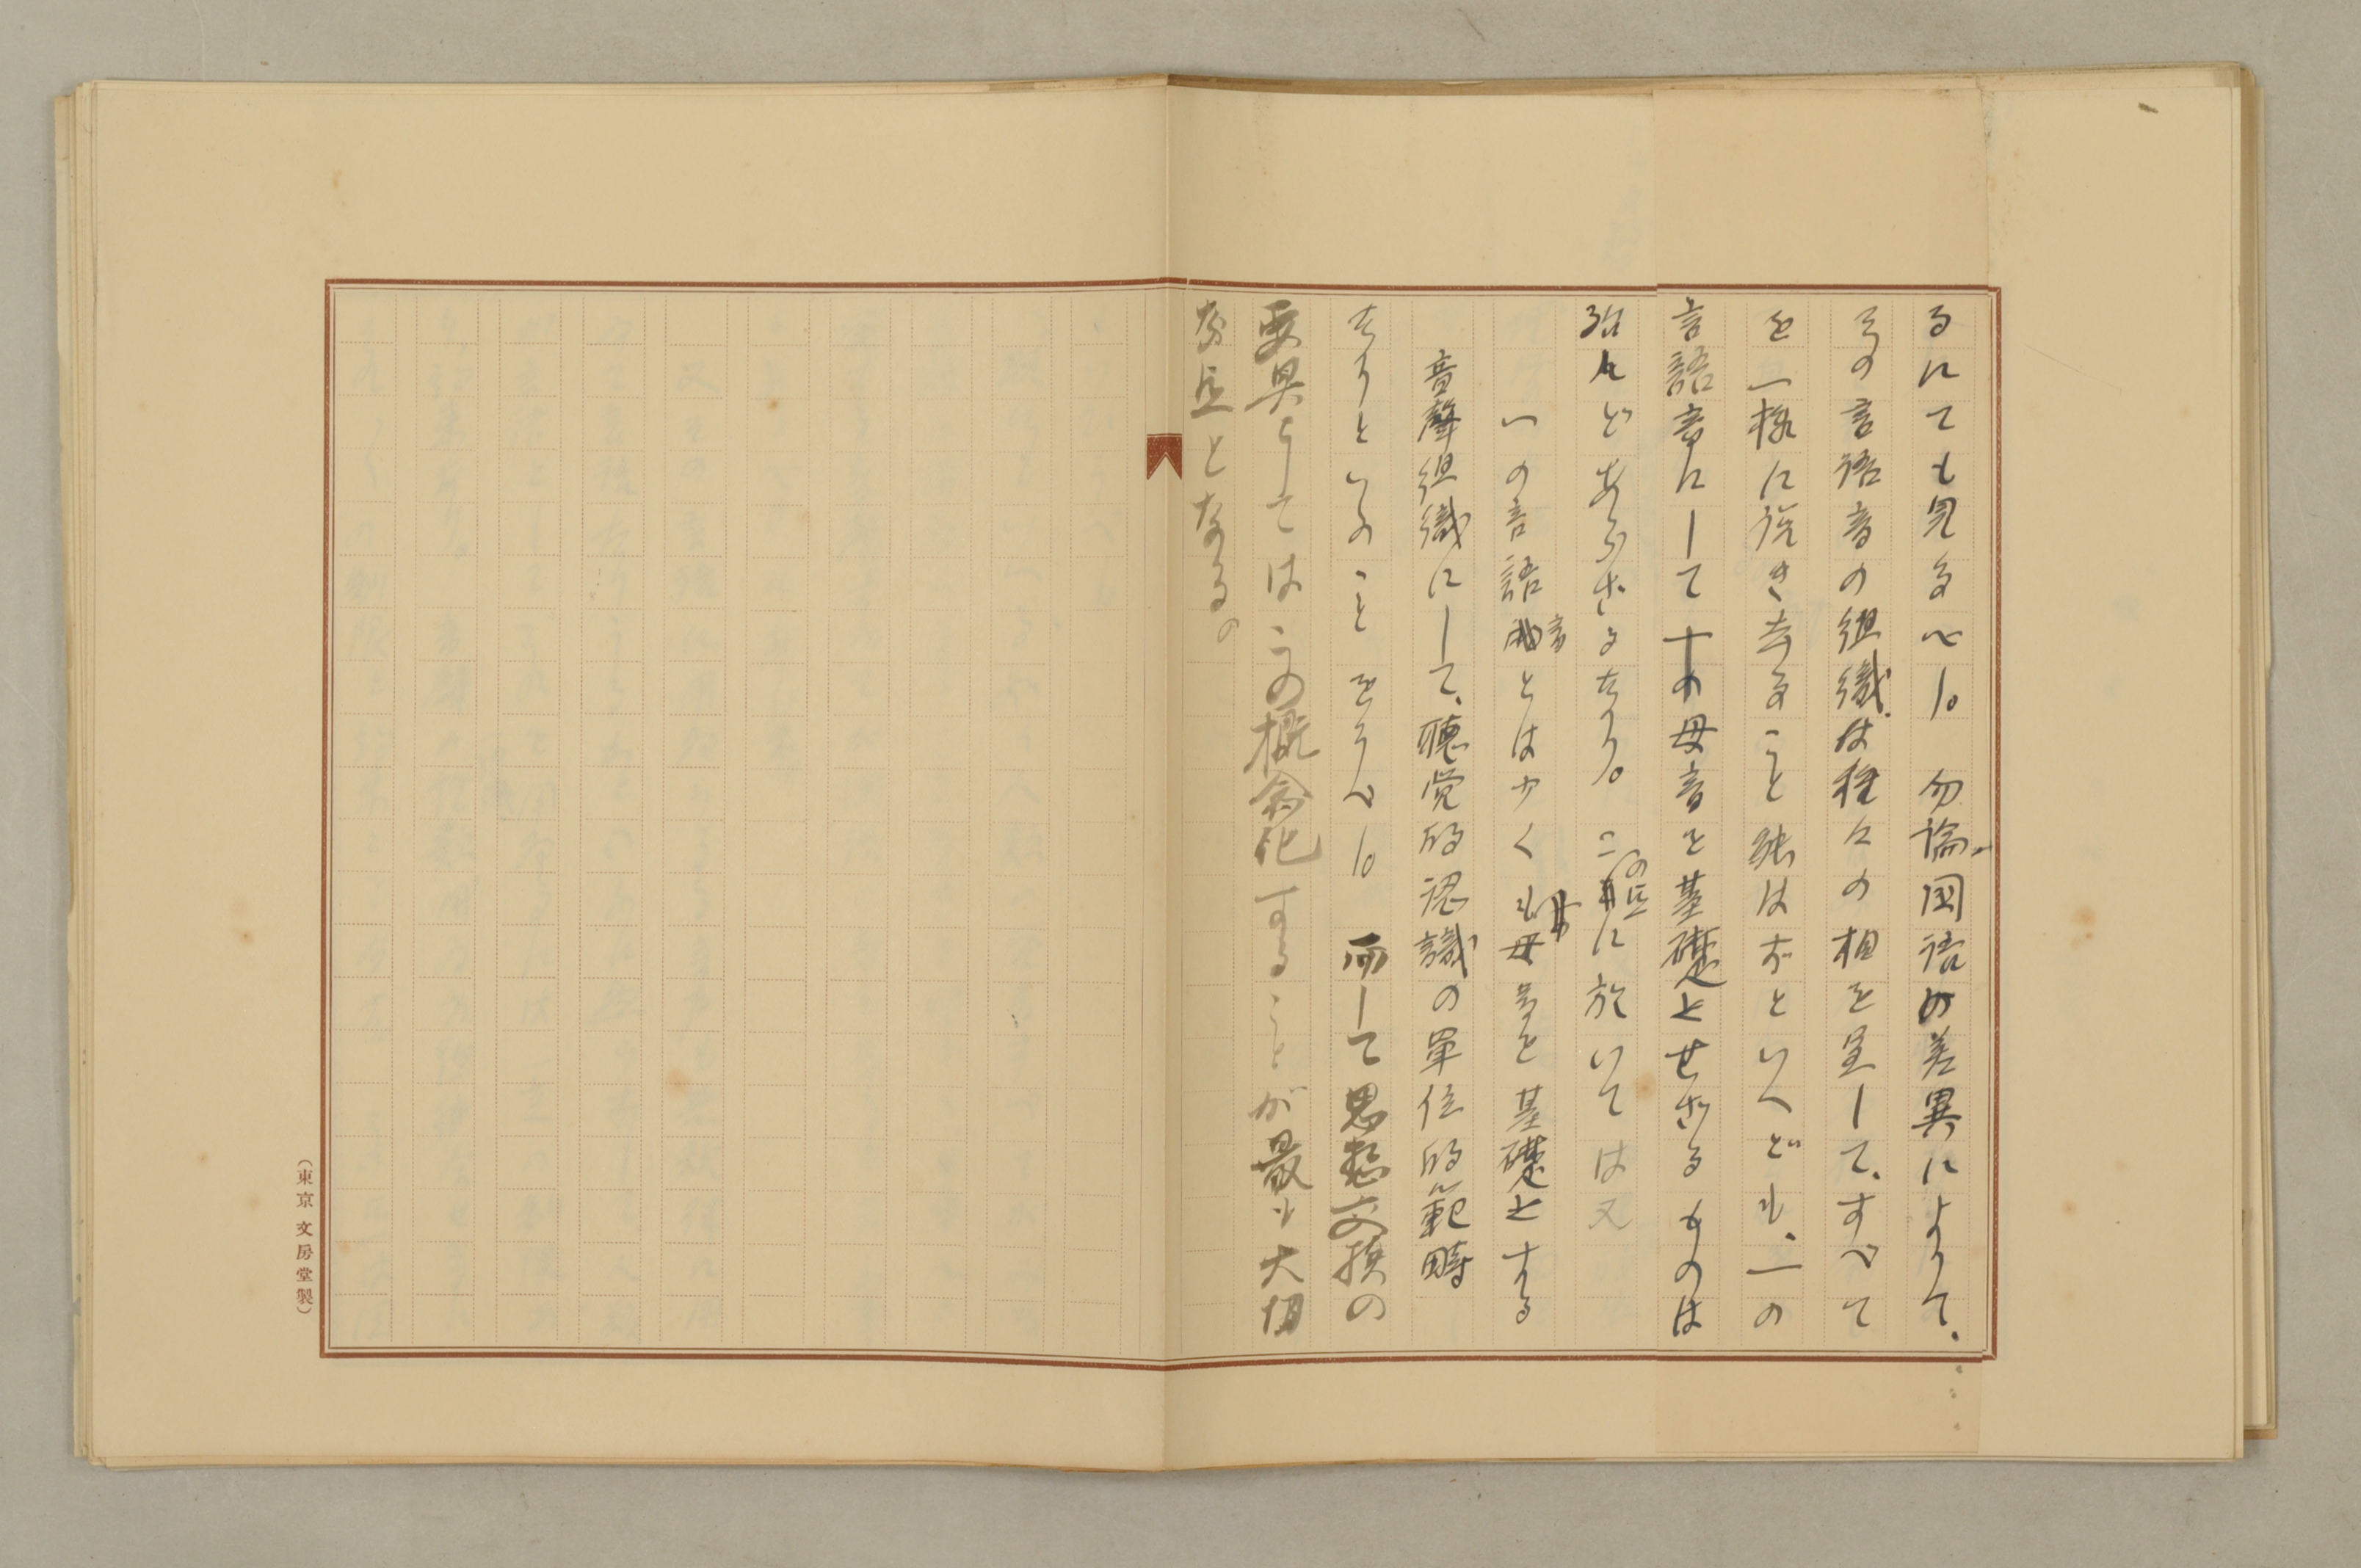 るにても見るべし。勿論、国語の差異によりて、
その言語音の組織は種々の相を呈して、すべて
を一様に説き去ること能はずといへども、一の
言語音にして十の母音を基礎とせざるものは
殆んどあらざるなり。この点に於いては又
一の言語音とは少くも母音を基礎とする
音聲組織にして、聴覚的認識の単位的範疇
なりといふことをうべし。而して思想交換の
要具としてはこの概念化することが最も大切
な点となる。
(東京文房堂製)